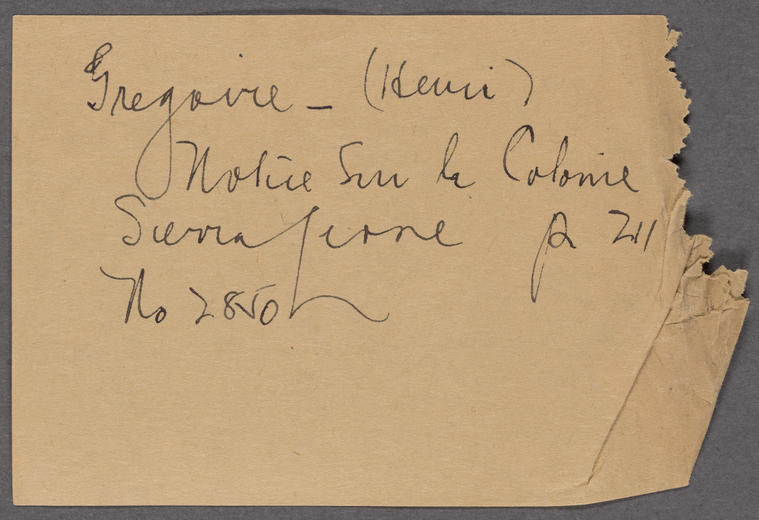 Gregoire - (Henri)
Notice Sur la Colonie
Sierra Leone p 211
No 2850